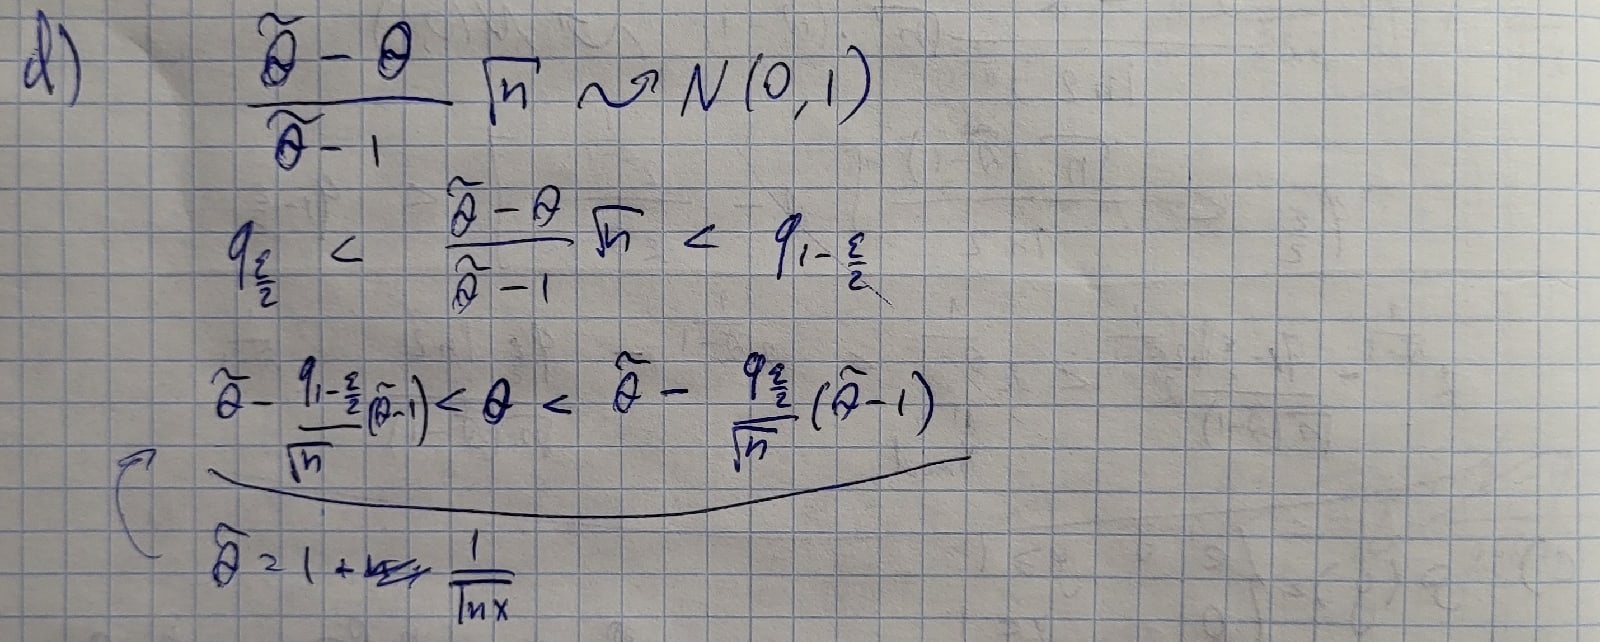 d) (θ̃ - θ)/(θ̃ - 1) √n ⇝ N(0,1)
q_{ε/2} < (θ̃ - θ)/(θ̃ - 1) √n < q_{1-ε/2}
θ̃ - q_{1-ε/2}/√n (θ̃-1) < θ < θ̃ - q_{ε/2}/√n (θ̃-1)
θ̃ = 1 + 1/\overline{ln x}